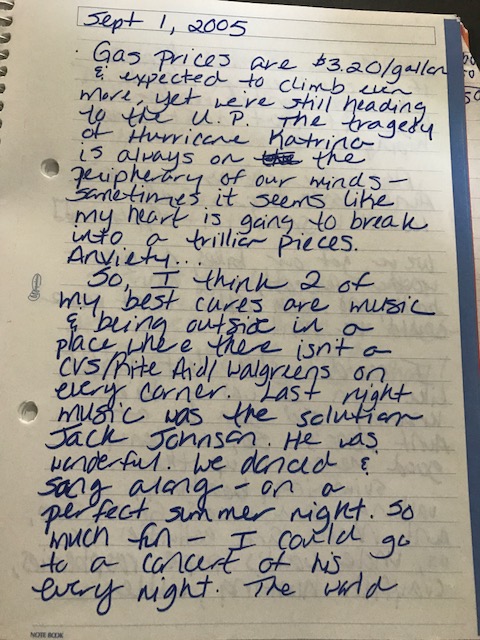 Sept 1, 2005
Gas prices are $3.20/gallon
& expected to climb even
more, yet we're still heading
to the U.P. The tragedy
of Hurricane Katrina
is always on the
peripherary of our minds -
sometimes it seems like
my heart is going to break
into a trillion pieces.
Anxiety...
So, I think 2 of
my best cures are music
& being outside in a
place where there isn't a
CVS/Rite Aid/Walgreens on
every corner. Last night
music was the solution
Jack Johnson. He was
wonderful. We danced &
sang along - on a
perfect summer night. So
much fun - I could go
to a concert of his
every night. The world
NOTE BOOK